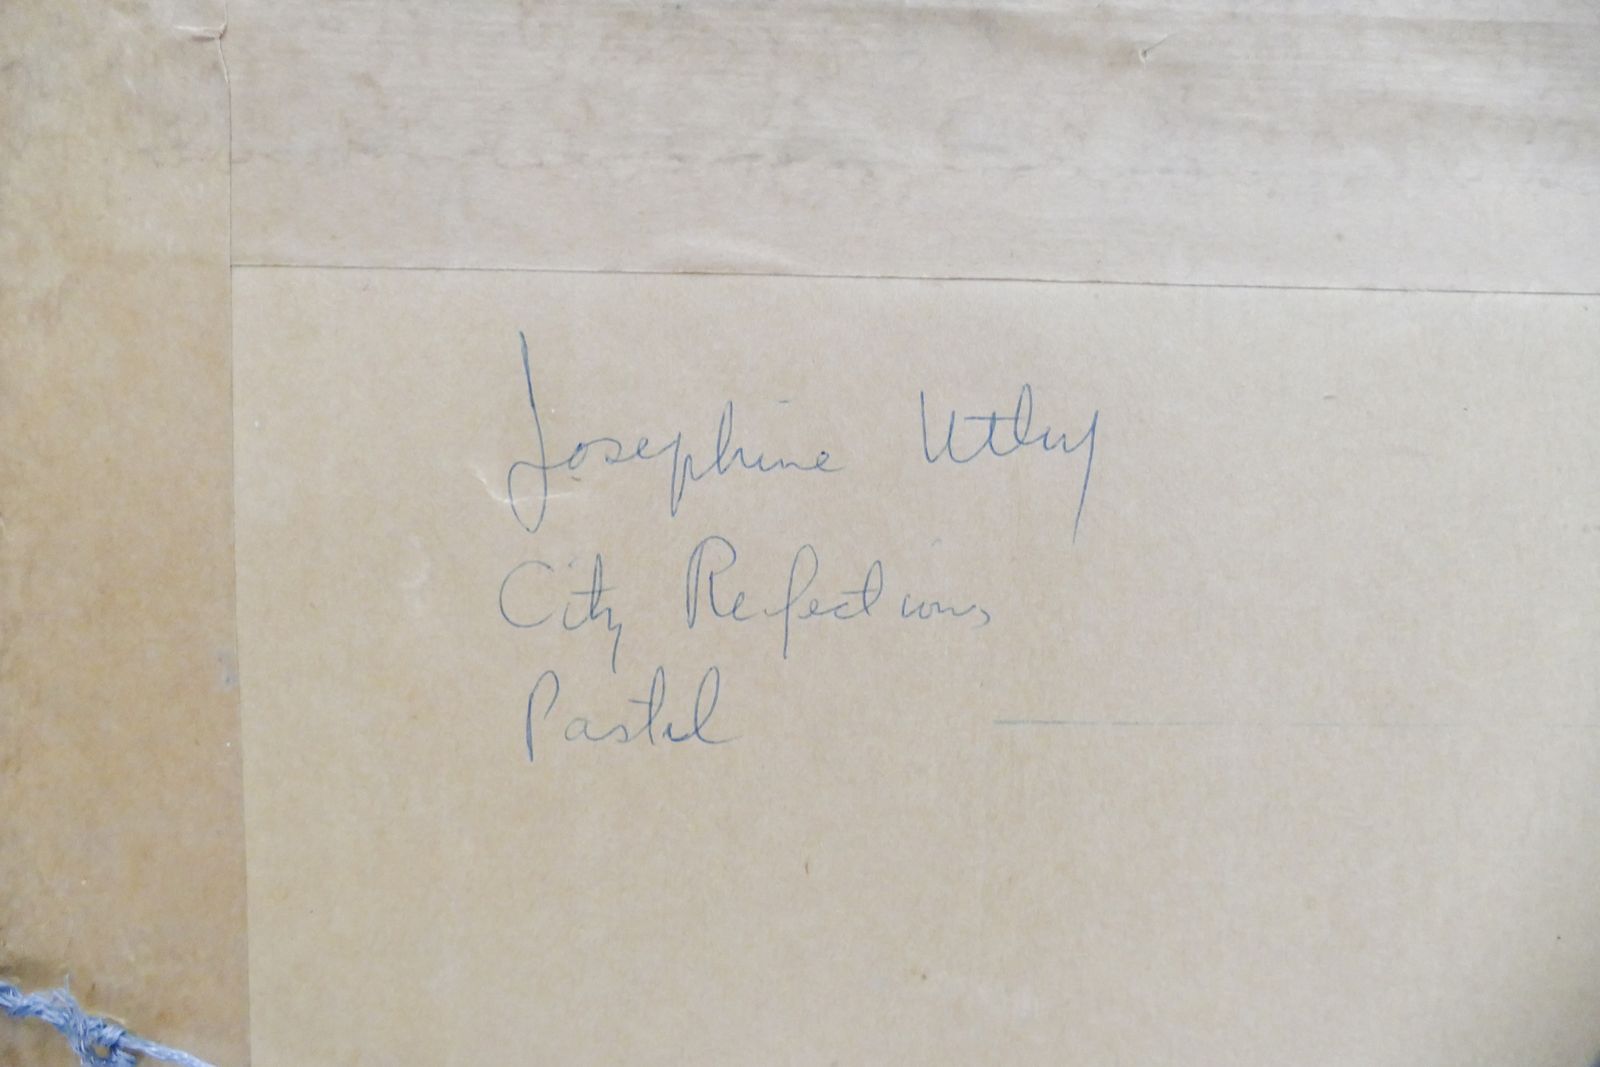 Josephine Utley
City Reflections
Pastel